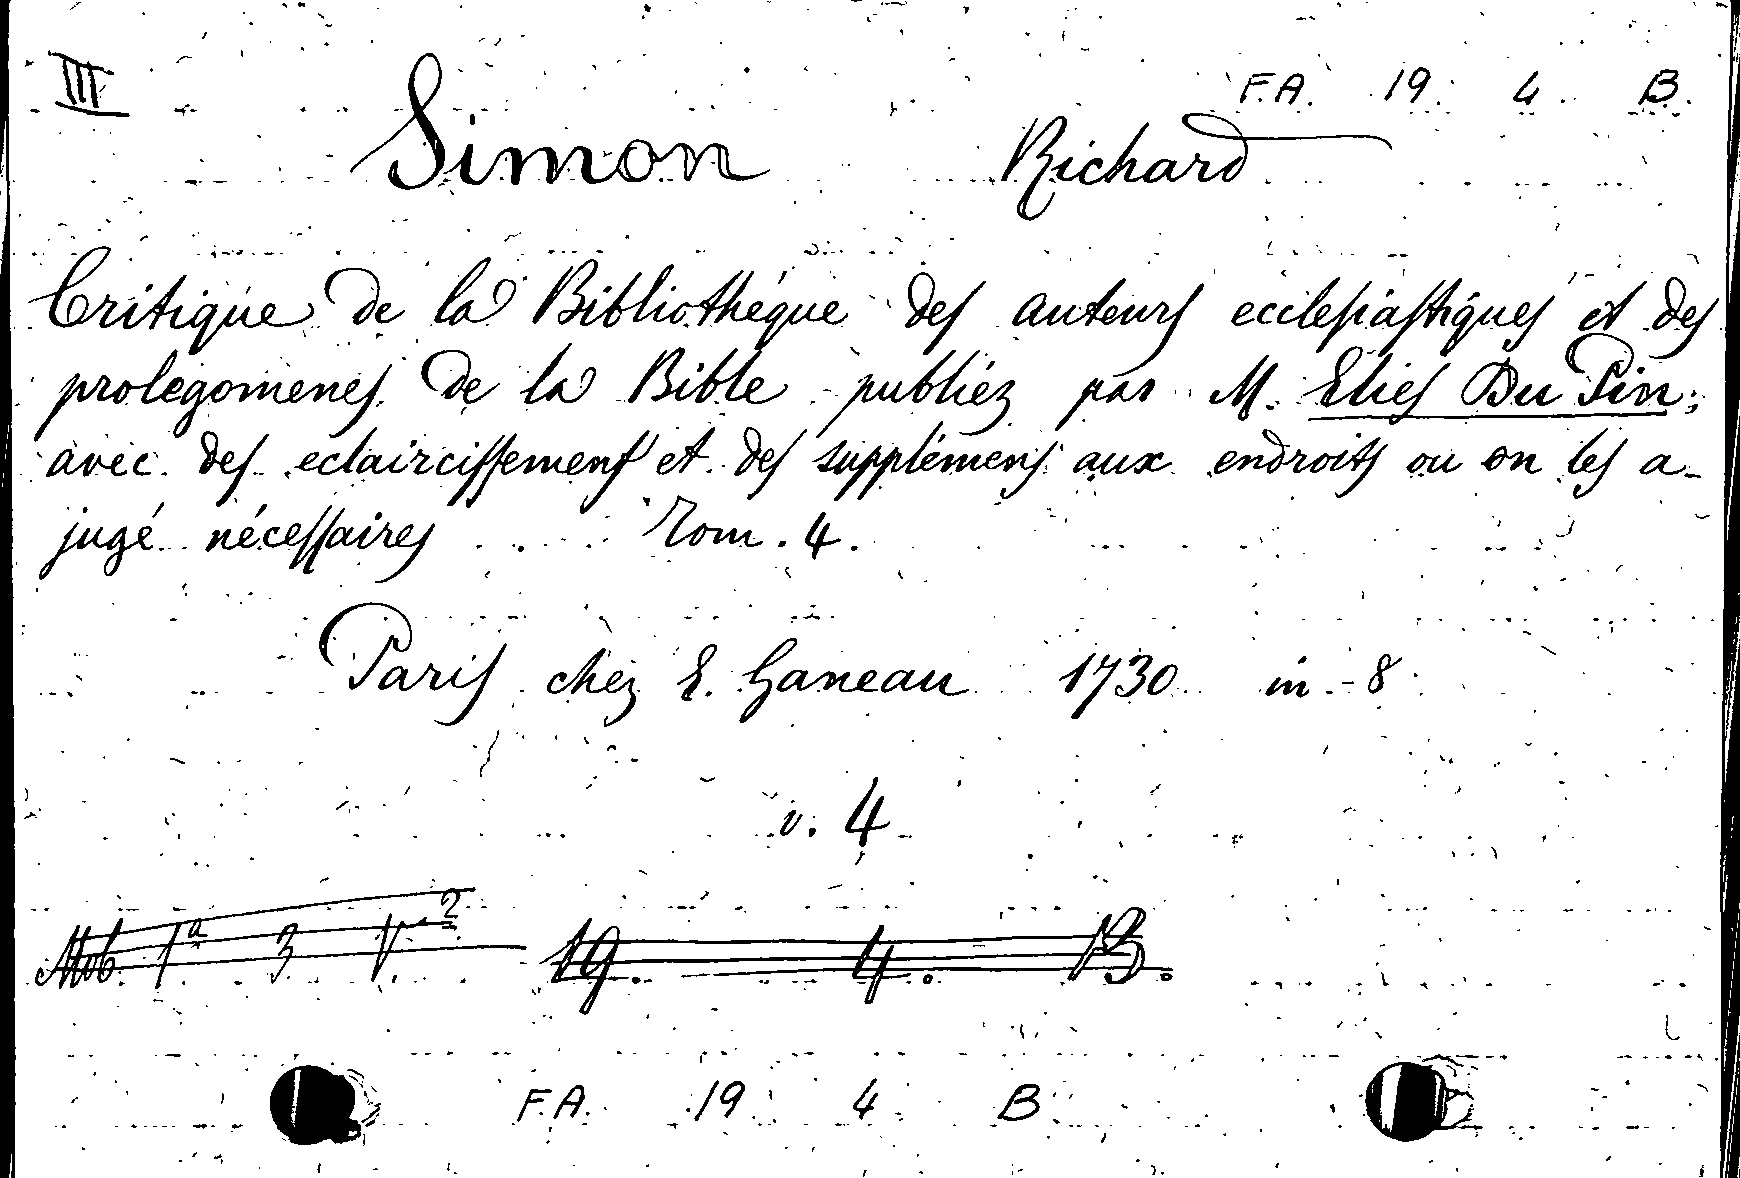 III F.A. 19. 4. B.
Simon Richard
Critique de la Bibliothéque des auteurs ecclesiastiques et des
prolegomenes de la Bible publiéz par M. Elies Du Pin;
avec des eclaircissemens et des supplémens aux endroits ou on les a
jugé nécessaires . . . Tom. 4.
Paris chéz E. Ganeau 1730 in-8
v. 4
Mob. 1ª 3 V. 2 19. 4. B.
F.A. 19 4 B